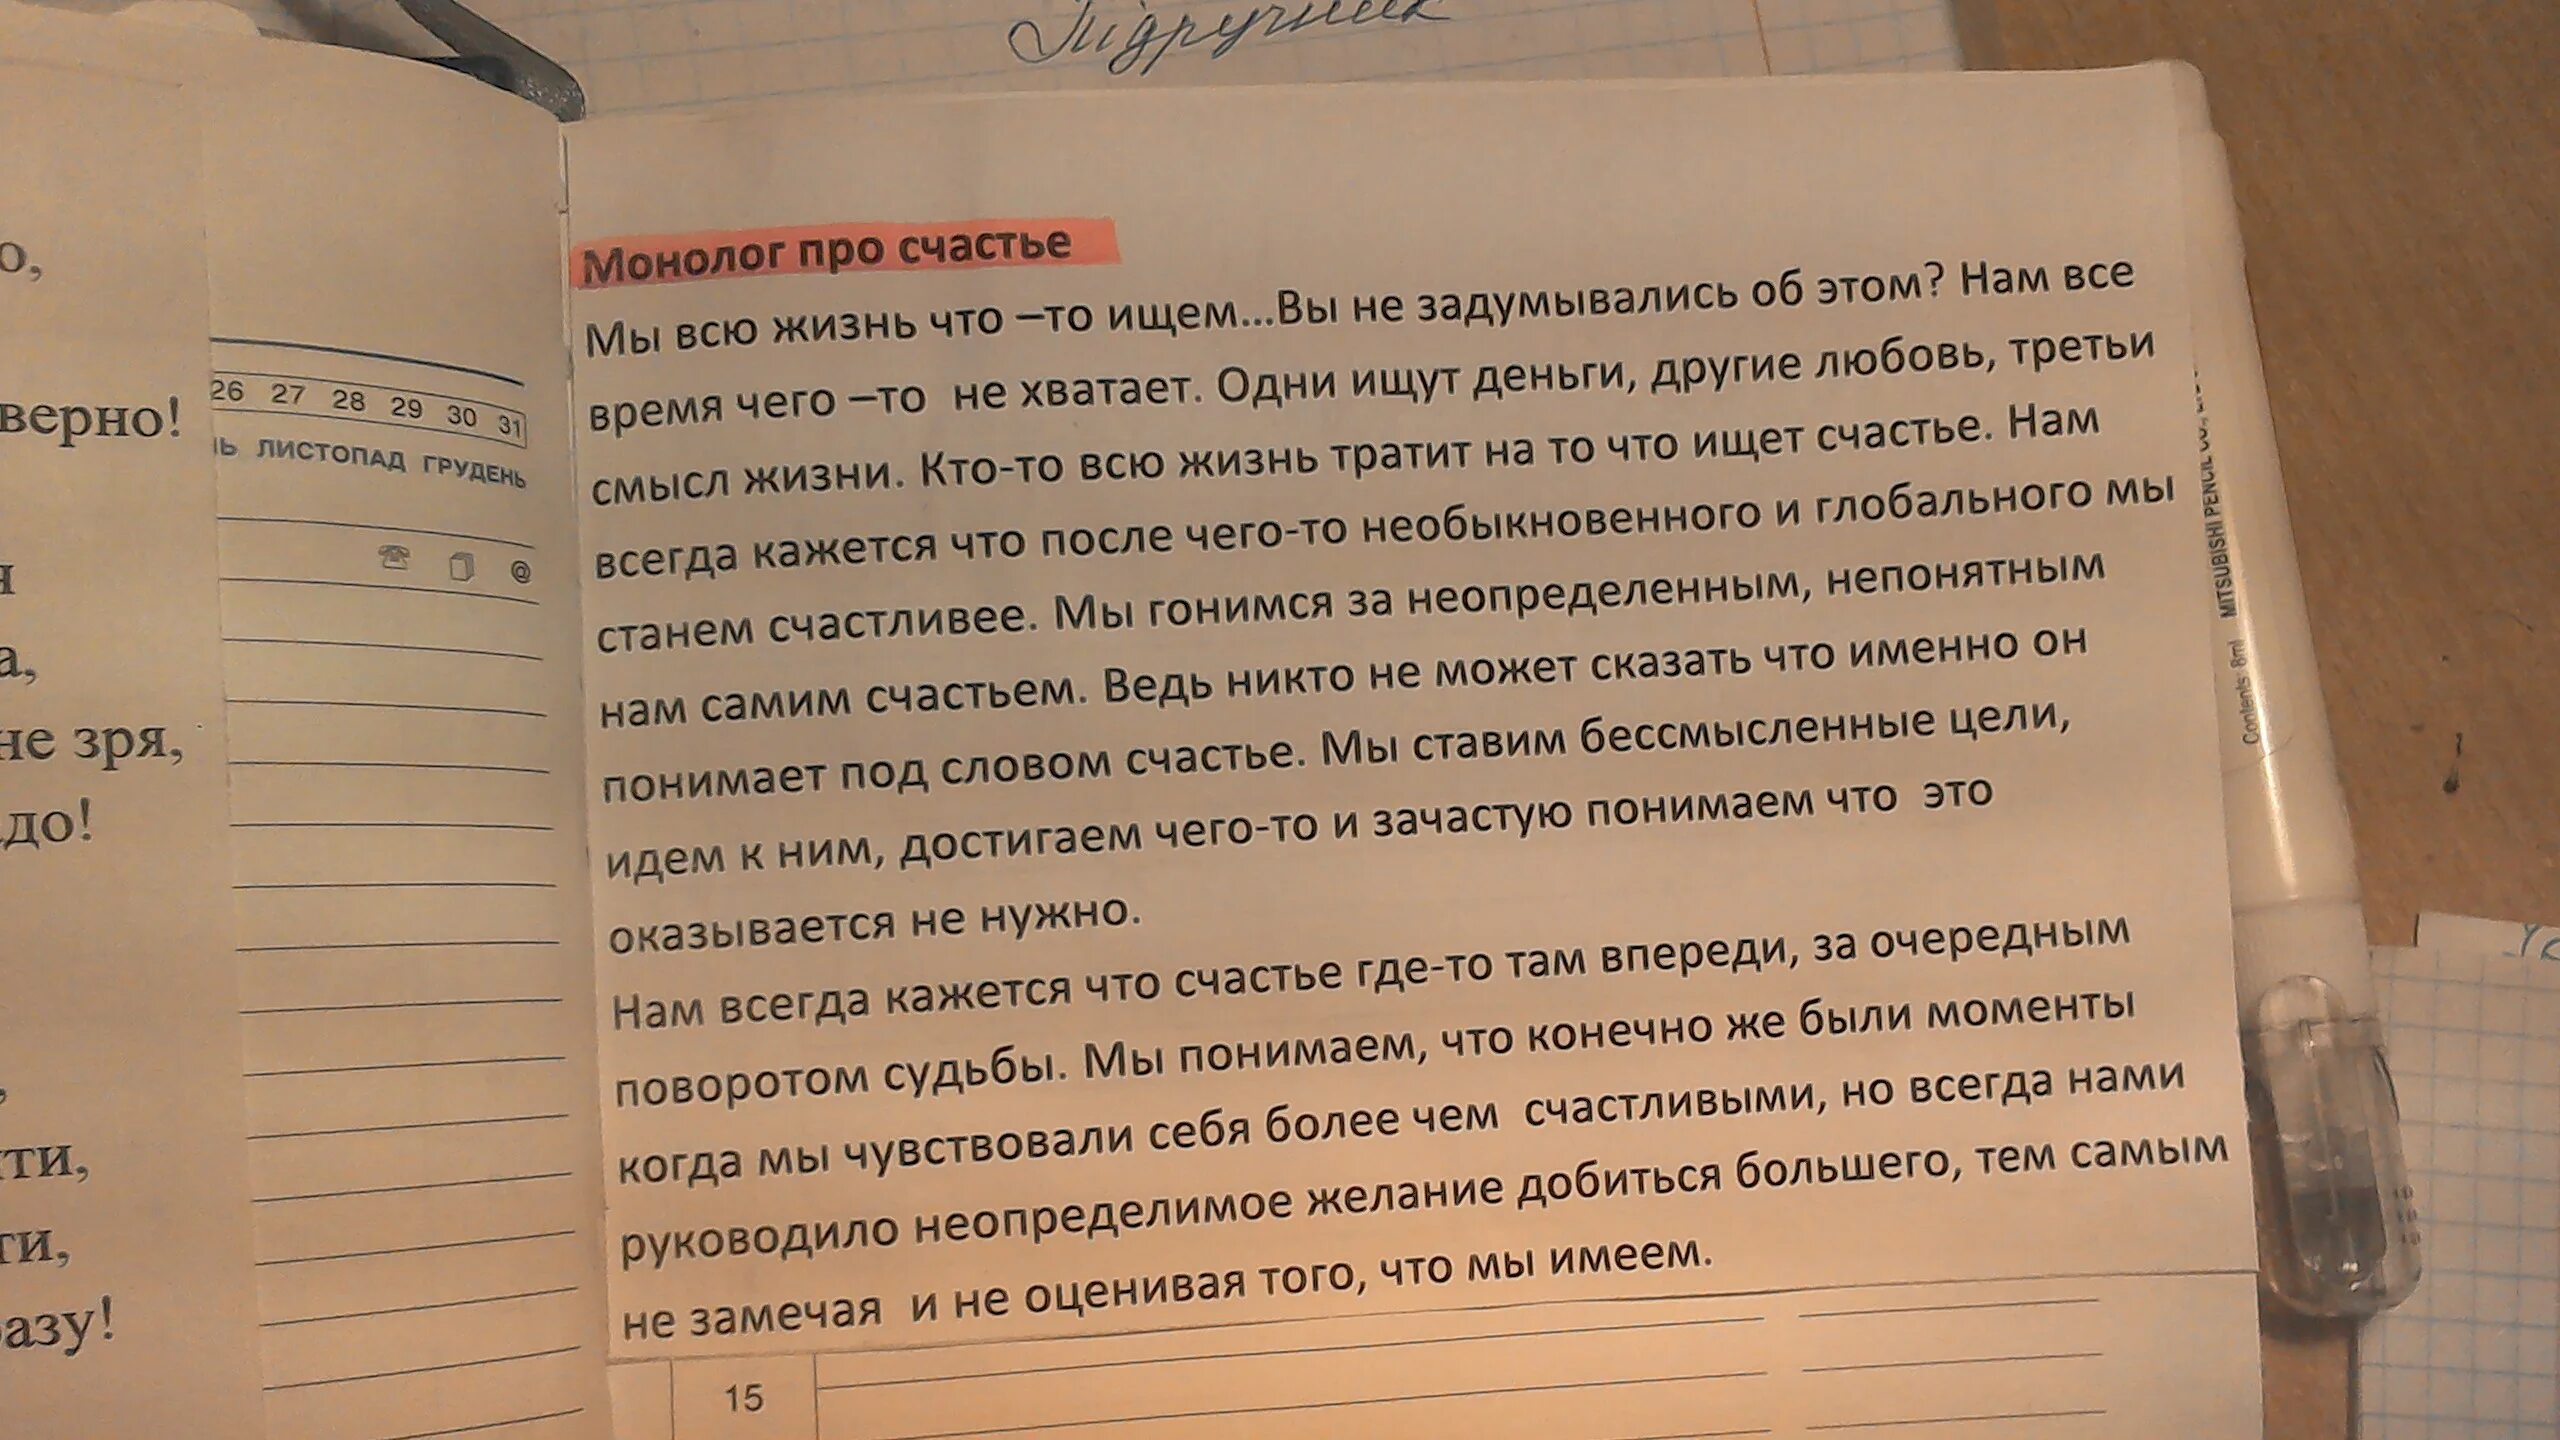 Підручник
о,
верно!
я
а,
не зря,
адо!
,
ти,
ти,
разу!
26 27 28 29 30 31
НЬ ЛИСТОПАД ГРУДЕНЬ
@
Монолог про счастье
Мы всю жизнь что –то ищем...Вы не задумывались об этом? Нам все
время чего –то не хватает. Одни ищут деньги, другие любовь, третьи
смысл жизни. Кто-то всю жизнь тратит на то что ищет счастье. Нам
всегда кажется что после чего-то необыкновенного и глобального мы
станем счастливее. Мы гонимся за неопределенным, непонятным
нам самим счастьем. Ведь никто не может сказать что именно он
понимает под словом счастье. Мы ставим бессмысленные цели,
идем к ним, достигаем чего-то и зачастую понимаем что это
оказывается не нужно.
Нам всегда кажется что счастье где-то там впереди, за очередным
поворотом судьбы. Мы понимаем, что конечно же были моменты
когда мы чувствовали себя более чем счастливыми, но всегда нами
руководило неопределимое желание добиться большего, тем самым
не замечая и не оценивая того, что мы имеем.
15
Contents: 8ml MITSUBISHI PENCIL CO.,